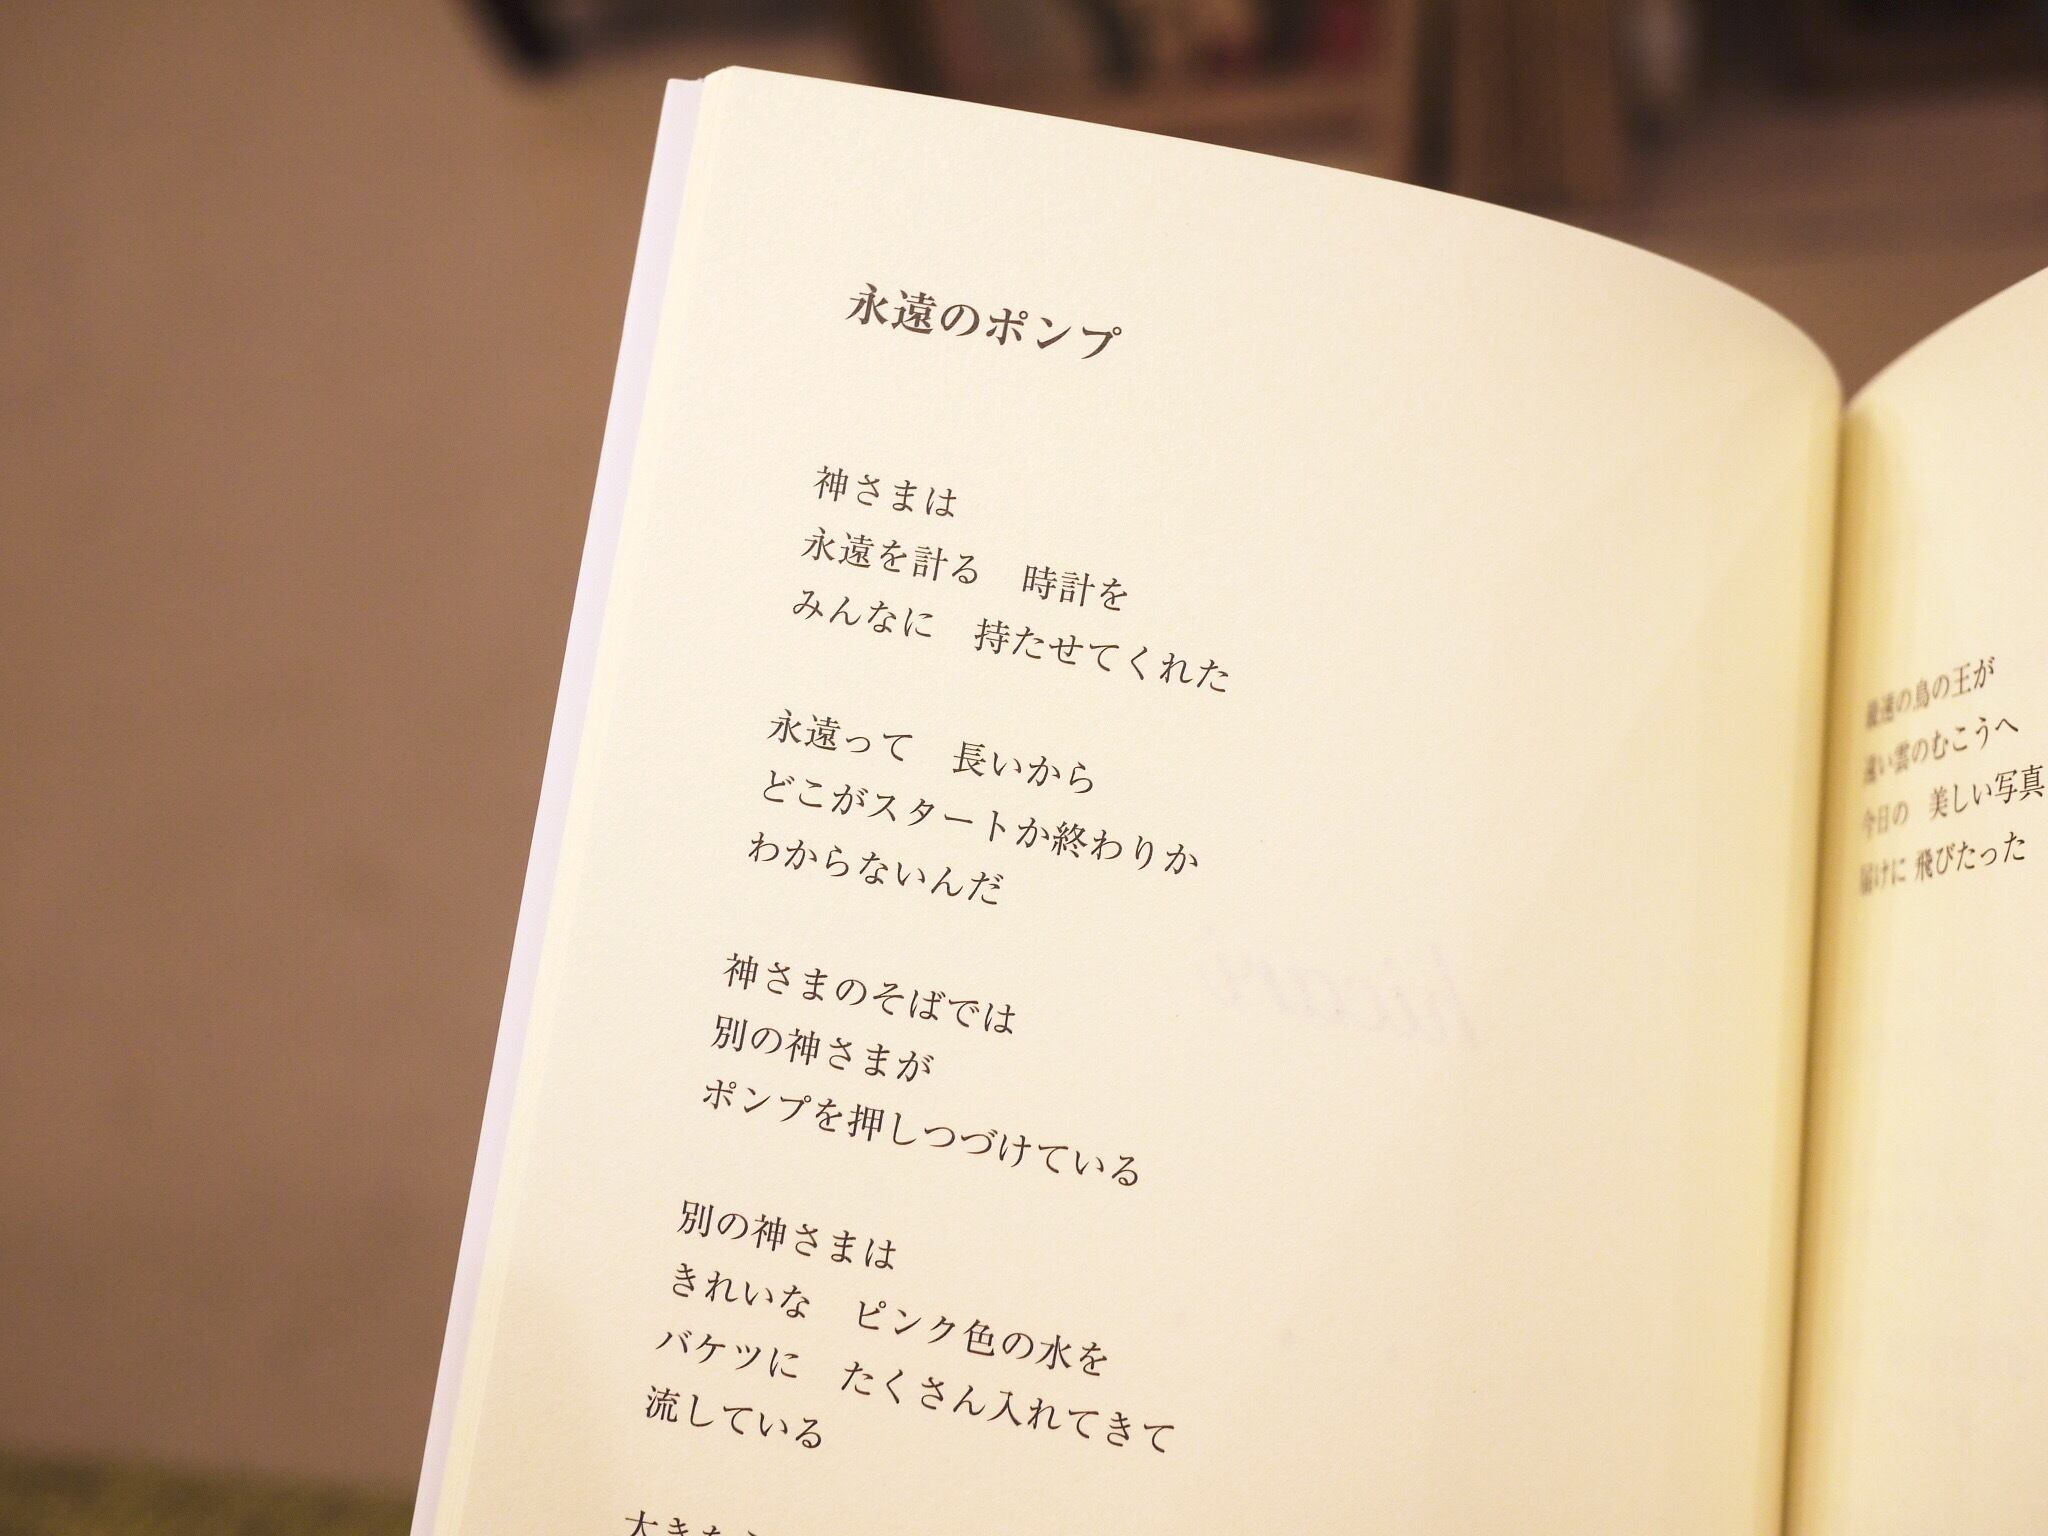 永遠のポンプ
神さまは
永遠を計る　時計を
みんなに　持たせてくれた
永遠って　長いから
どこがスタートか終わりか
わからないんだ
神さまのそばでは
別の神さまが
ポンプを押しつづけている
別の神さまは
きれいな　ピンク色の水を
バケツに　たくさん入れてきて
流している
大きな
の鳥の王が
遠い雲のむこうへ
今日の　美しい写真
届けに 飛びたった